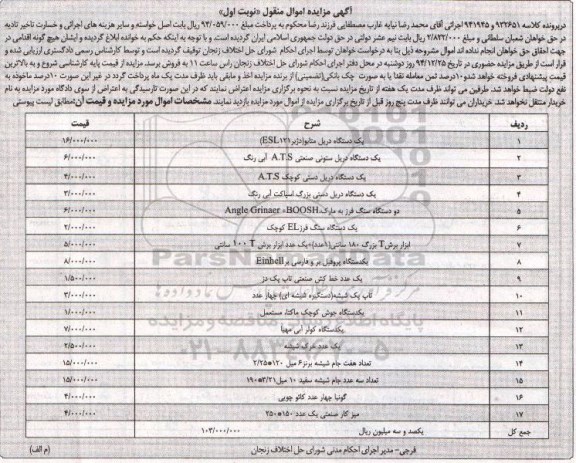 آگهی مزایده اموال منقول «نوبت اول»
درپرونده کلاسه ۹۳۲۶۵۱ و ۹۴۱۹۴۵ اجرائی آقای محمد رضا نیابه غارب مصطفایی فرزند رضا محکوم به پرداخت مبلغ ۹۴/۰۵۹/۰۰۰ ریال بابت اصل خواسته و سایر هزینه های اجرائی و خسارت تاخیر تادیه
در حق خواهان شعبان سلطانی و مبلغ ۲/۸۳۲/۰۰۰ ریال بابت نیم عشر دولتی در حق دولت جمهوری اسلامی ایران گردیده است و با توجه به اینکه حکم به خوانده ابلاغ گردیده و ایشان هیچ گونه اقدامی در
جهت احقاق حق خواهان انجام نداده اند اموال مشروحه ذیل بنا به درخواست خواهان توسط اجرای احکام شورای حل اختلاف زنجان توقیف گردیده است و توسط کارشناس رسمی دادگستری ارزیابی شده و
قرار است از طریق مزایده حضوری در تاریخ ۹۴/۱۲/۲۵ روز دوشنبه در محل دفتر اجرای احکام شورای حل اختلاف زنجان راس ساعت ۱۱ به فروش برسد. مزایده از قیمت پایه کارشناسی شروع و به بالاترین
قیمت پیشنهادی فروخته خواهد شد ۱۰درصد ثمن معامله نقدا یا به صورت چک بانکی(تضمینی) از برنده مزایده اخذ و مابقی باید ظرف مدت یک ماه پرداخت گردد در غیر این صورت ۱۰درصد ماخوذه به
نفع دولت ضبط خواهد شد. طرفین می تواند ظرف مدت یک هفته از تاریخ مزایده نسبت به نحوه برگزاری مزایده اعتراض نمایند که در این صورت تارسیدگی به اعتراض از سوی دادگاه مورد مزایده به نام
خریدار منتقل نخواهد شد. خریداران می توانند ظرف مدت پنج روز قبل از تاریخ برگزاری مزایده از اموال مورد مزایده بازدید نمایند. مشخصات اموال مورد مزایده و قیمت آن:مطابق لیست پیوستی
ردیف شرح قیمت
۱ یک دستگاه دریل متابو(دژبر ESL۱۲۱) ۱۶/۰۰۰/۰۰۰
۲ یک دستگاه دریل ستونی صنعتی A.T.S آبی رنگ ۶/۰۰۰/۰۰۰
۳ یک دستگاه دریل دستی کوچک A.T.S ۴/۰۰۰/۰۰۰
۴ یک دستگاه دریل دستی بزرگ اسپاکت آبی رنگ ۳/۰۰۰/۰۰۰
۵ دو دستگاه سنگ فرز به مارک BOOSH+ Angle Grinaer ۶/۰۰۰/۰۰۰
۶ یک دستگاه سنگ فرز EL کوچک ۲/۰۰۰/۰۰۰
۷ ابزار برش T بزرگ ۱۸۰ سانتی(۱عدد)+یک عدد ابزار برش T ۱۰۰ سانتی ۵/۰۰۰/۰۰۰
۸ یکدستگاه پروفیل بر و فارسی بر Einhell ۸/۰۰۰/۰۰۰
۹ یک عدد خط کش صنعتی تاپ یک دز ۱/۵۰۰/۰۰۰
۱۰ تاپ پک شیشه(دستگیره شیشه ای) چهار عدد ۳/۰۰۰/۰۰۰
۱۱ یکدستگاه جوش کوچک ماکتا، مستعمل ۱/۰۰۰/۰۰۰
۱۲ یکدستگاه کولر آبی مهیا ۷/۰۰۰/۰۰۰
۱۳ یک عدد خرک شیشه ۲/۵۰۰/۰۰۰
۱۴ تعداد هفت جام شیشه برنز۶ میل ۱۲۰*۲/۲۵ ۱۵/۰۰۰/۰۰۰
۱۵ تعداد سه عدد جام شیشه سفید ۱۰ میل ۳/۲۱*۱۹۰ ۱۵/۰۰۰/۰۰۰
۱۶ گونیا چهار عدد کائو چوبی ۴/۰۰۰/۰۰۰
۱۷ میز کار صنعتی یک عدد ۱۵۰*۲۵۰ ۴/۰۰۰/۰۰۰
جمع کل یکصد و سه میلیون ریال ۱۰۳/۰۰۰/۰۰۰
فرجی- مدیر اجرای احکام مدنی شورای حل اختلاف زنجان (م الف)